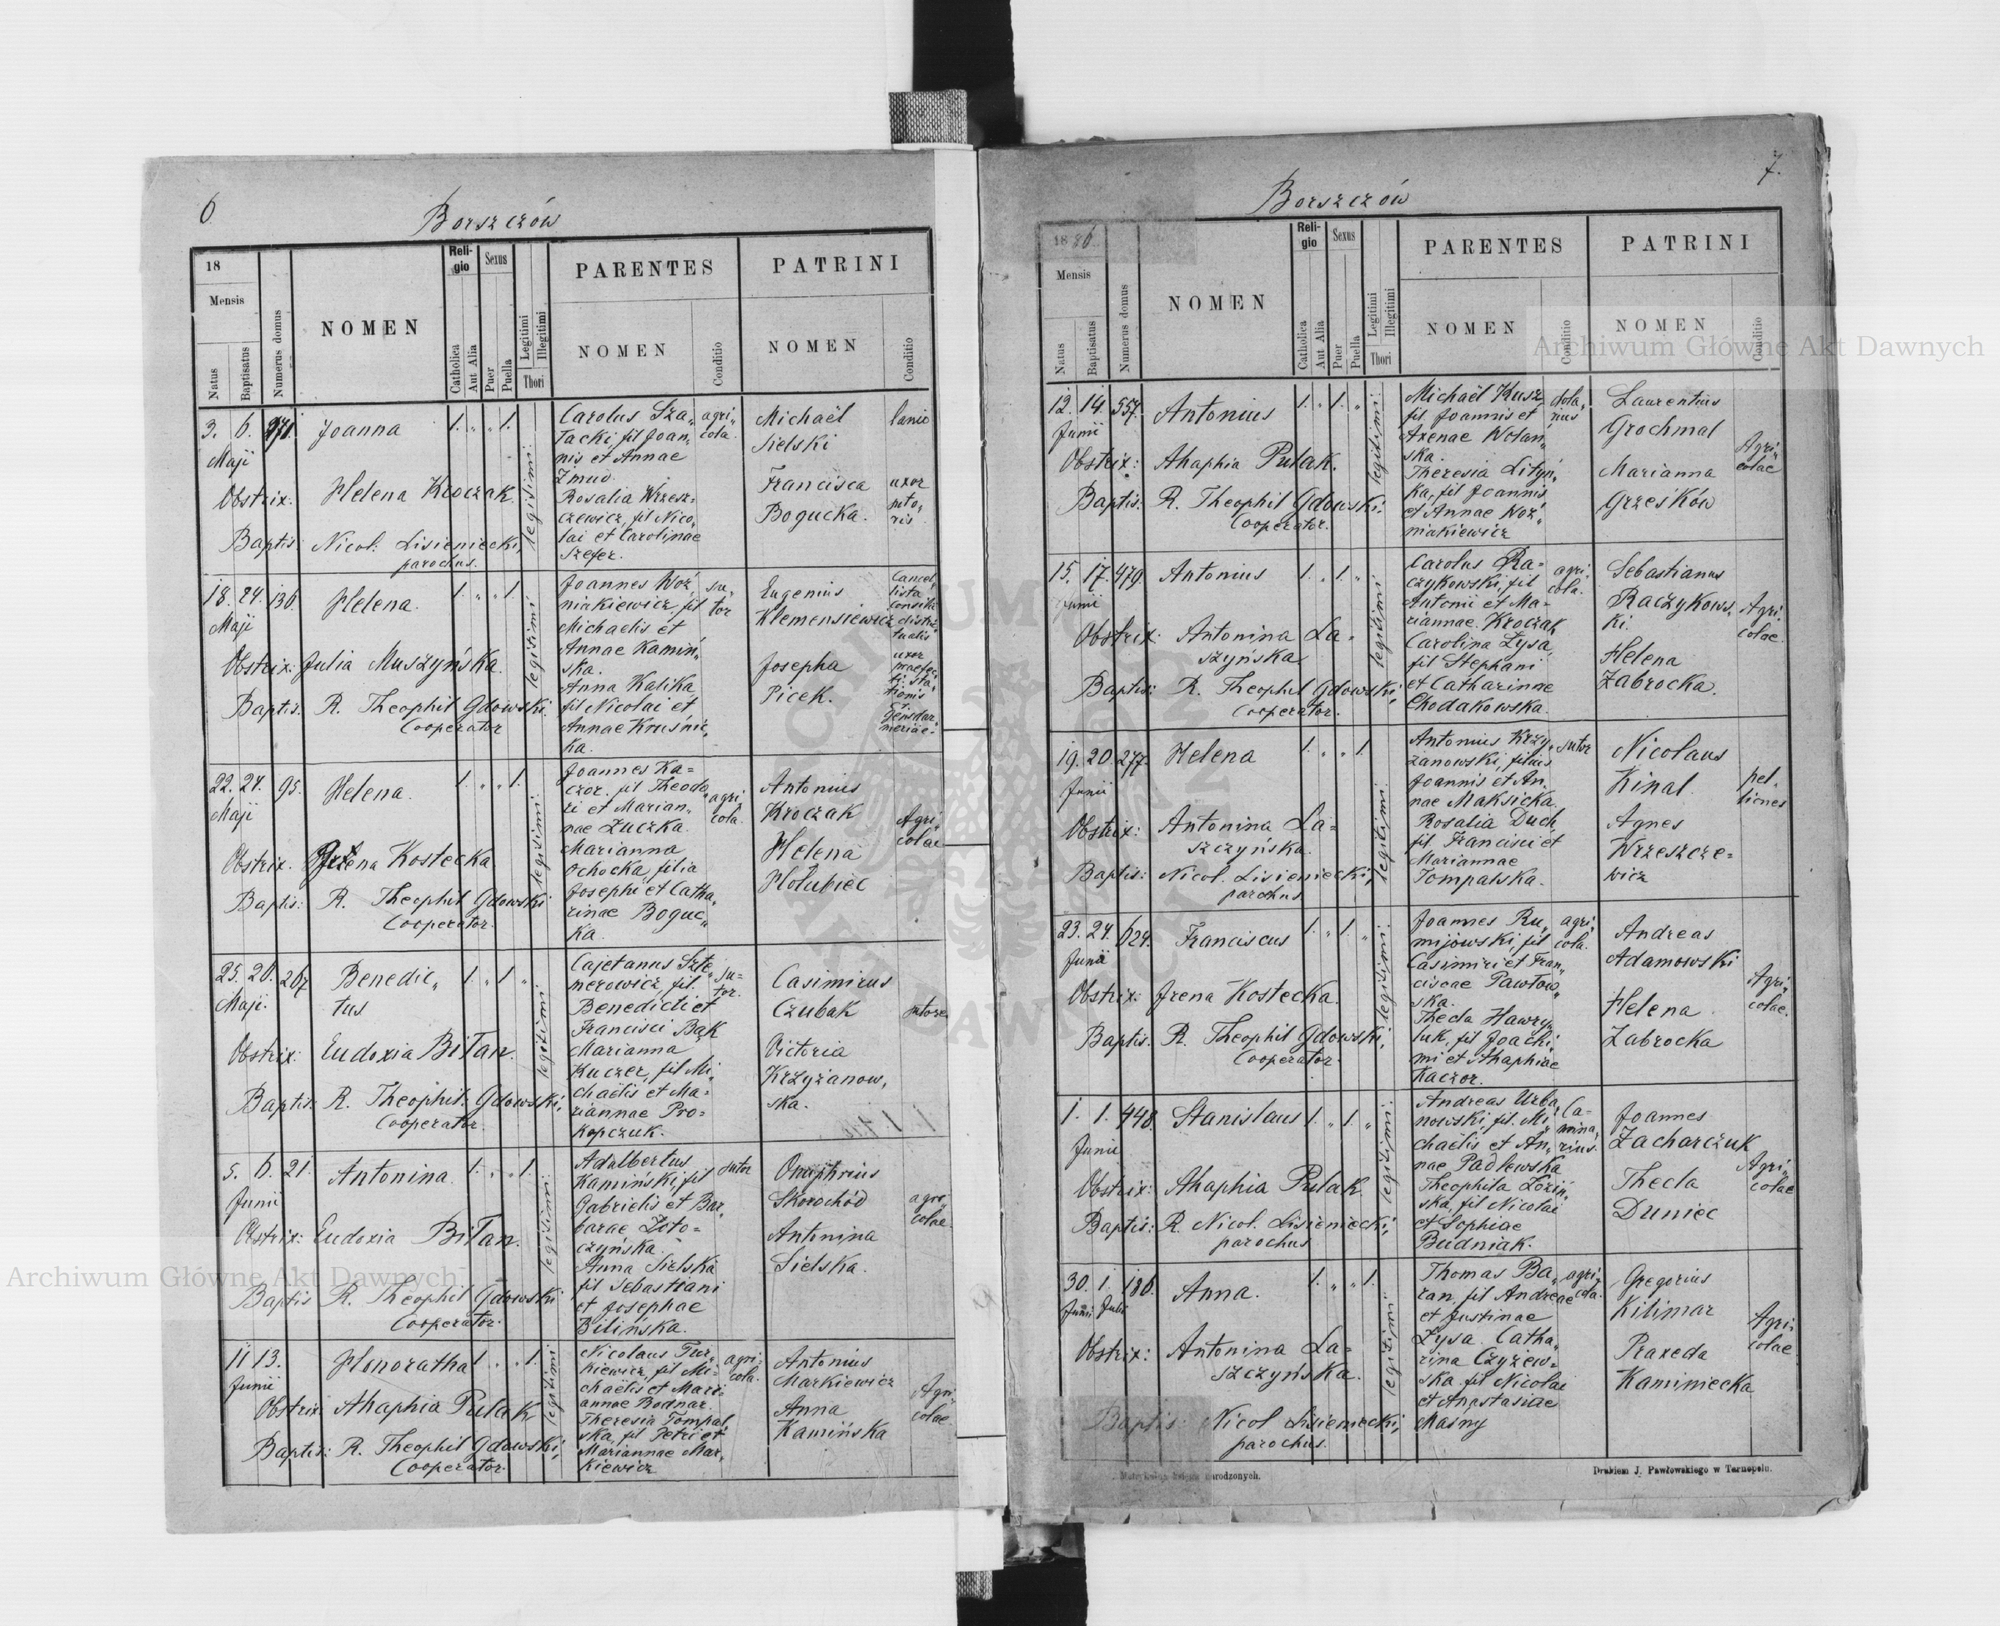 6
Borszczów
18
Mensis
Natus
Baptisatus
Numerus domus
NOMEN
Reli-
gio
Catholica
Aut Alia
Sexus
Puer
Puella
Legitimi
Illegitimi
Thori
PARENTES
NOMEN
Conditio
PATRINI
NOMEN
Conditio
3. 6. 271. Joanna 1. „ „ 1.
Maji
Obstrix. Helena Kroczak
Baptis: Nicol: Lisieniecki,
parochus.
legitimi.
Carolus Sza„
tacki, fil Joan„
nis et Annae
Żmud.
Rosalia Wrzesz-
czewicz, fil Nico„
lai et Carolinae
Szefer.
agri„
cola.
Michaël
Sielski
Francisca
Bogucka.
lanio
uxor
suto„
ris.
18. 24. 136. Helena. 1. „ „ 1
Maji
Obstrix: Julia Muszyńska.
Baptis. R. Theophil Gdowski.
Cooperator
legitimi
Joannes Woź„
niakiewicz, fil
Michaelis et
Annae Kamiń„
ska.
Anna Kalika,
fil Nicolai et
Annae Kruśnic„
ka.
su„
tor
Eugenius
Klemensiewicz
Josepha
Picek.
uxor
22. 24. 95. Helena. 1. „ „ 1.
Maji
Obstrix. Irena Kostecka
Baptis: R. Theophil Gdowski
Cooperator.
legitimi.
Joannes Ka=
czor. fil Theodo„
ri et Marian„
nae Łuczka.
Marianna
Ochocka, filia
Josephi et Catha„
rinae Boguc„
ka.
agri„
cola.
Antonius
Kroczak
Helena
Hołubiec
Agri„
colae
25. 26. 267 Benedic„ 1. „ 1 „
Maji.
tus
Obstrix: Eudoxia Bilan.
Baptis: R. Theophil: Gdowski,
Cooperator.
legitimi
Cajetanus Szte„
nerowicz, fil.
Benedicti et
Francisci Bąk
Marianna
Kuczer, fil Mi„
chaëlis et Ma=
riannae Pro=
kopczuk.
su=
tor.
Casimirus
Czubak
Victoria
Krzyżanow„
ska.
sutores
5. 6. 21. Antonina. 1. „ „ 1.
Junii
Obstrix: Eudoxia Bilan.
Baptis R. Theophil Gdowski
Cooperator.
legitimi
Adalbertus
Kamiński, fil
Gabrielis et Bar„
barae Zło=
czyńska.
Anna Sielska
fil Sebastiani
et Josephae
Bilińska.
sutor
Onuphrius
Skorochód
Antonina
Sielska.
agri„
colae
11 13. Honoratha 1 „ „ 1.
Junii
Obstrix Ahaphia Pulak
Baptis: R. Theophil Gdowski,
Cooperator.
legitimi
Nicolaus Tur„
kiewicz, fil Mi=
chaëlis et Mari
annae Bodnar.
Theresia Tompal„
ska, fil Petri et
Mariannae Mar„
kiewicz
agri„
cola.
Antonius
Markiewicz
Anna
Kamińska
Agri„
colae.
7.
Borszczów
1886.
Mensis
Natus
Baptisatus
Numerus domus
NOMEN
Reli-
gio
Catholica
Aut Alia
Sexus
Puer
Puella
Legitimi
Illegitimi
Thori
PARENTES
NOMEN
Conditio
PATRINI
NOMEN
Conditio
12. 14. 557. Antonius 1. „ 1. „
Junii
Obstrix: Ahaphia Pulak.
Baptis: R. Theophil Gdowski;
Cooperator.
legitimi.
Michaël Kusz,
fil Joannis et
Axenae Wolań„
ska.
Theresia Lityń„
ka, fil Joannis
et Annae Woź„
niakiewicz
Laurentius
Grochmal
Marianna
Grześków
Agri„
colae
15. 17. 479. Antonius 1. „ 1. „
Junii
Obstrix: Antonina La=
szyńska
Baptis: R. Theophil Gdowski;
Cooperator.
legitimi
Carolus Ra=
czykowski, fil
Antonii et Ma=
riannae Kroczak
Carolina Łysa,
fil Stephani
et Catharinae
Chodakowska.
agri„
cola.
Sebastianus
Raczykows„
ki
Helena
Zabrocka.
Agri„
colae
19. 20. 277. Helena 1. „ „ 1
Junii
Obstrix: Antonina La=
szczyńska.
Baptis: Nicol. Lisieniecki;
parochus
legitimi.
Antonius Krzy„
żanowski, filius
Joannis et An„
nae Maksicka.
Rosalia Duch
fil Francisci et
Mariannae
Tompalska.
sutor
Nicolaus
Kinal
Agnes
Wrzeszcze=
wicz
pel„
liones
23. 24. 624. Franciscus 1. „ 1. „
Junii
Obstrix: Irena Kostecka.
Baptis. R. Theophil Gdowski,
Cooperator.
legitimi.
Joannes Ru„
mijowski, fil
Casimiri et Fran„
ciscae Pawłow„
ska.
Thecla Hawry„
luk, fil Joachi„
mi et Ahaphiae
Kaczor.
agri„
cola.
Andreas
Adamowski
Helena
Zabrocka
Agri„
colae.
1. 1. 448. Stanislaus 1. „ 1. „
Junii
Obstrix: Ahaphia Pulak
Baptis: R. Nicol. Lisieniecki;
parochus
legitimi.
Andreas Urba„
nowski, fil. Mi„
chaëlis et An„
nae Padlewska
Theophila Łoziń„
ska, fil Nicolai
et Sophiae
Budniak.
Ca=
mina„
rius.
Joannes
Zacharczuk
Thecla
Duniec
Agri„
colae
30. 1. 186. Anna. 1. „ „ 1.
Junii Julii
Obstrix: Antonina La=
szczyńska.
Baptis: Nicol Lisieniecki,
parochus.
legitimi
Thomas Ba„
ran, fil Andreae
et Justinae
Łysa. Catha„
rina Czyżew=
ska fil Nicolai
et Anastasiae
Masny
agri„
cola.
Gregorius
Kilimar
Praxeda
Kaminiecka
Agri„
colae
narodzonych.
Drukiem J. Pawłowskiego w Tarnopolu.
Archiwum Główne Akt Dawnych
Archiwum Główne Akt Dawnych